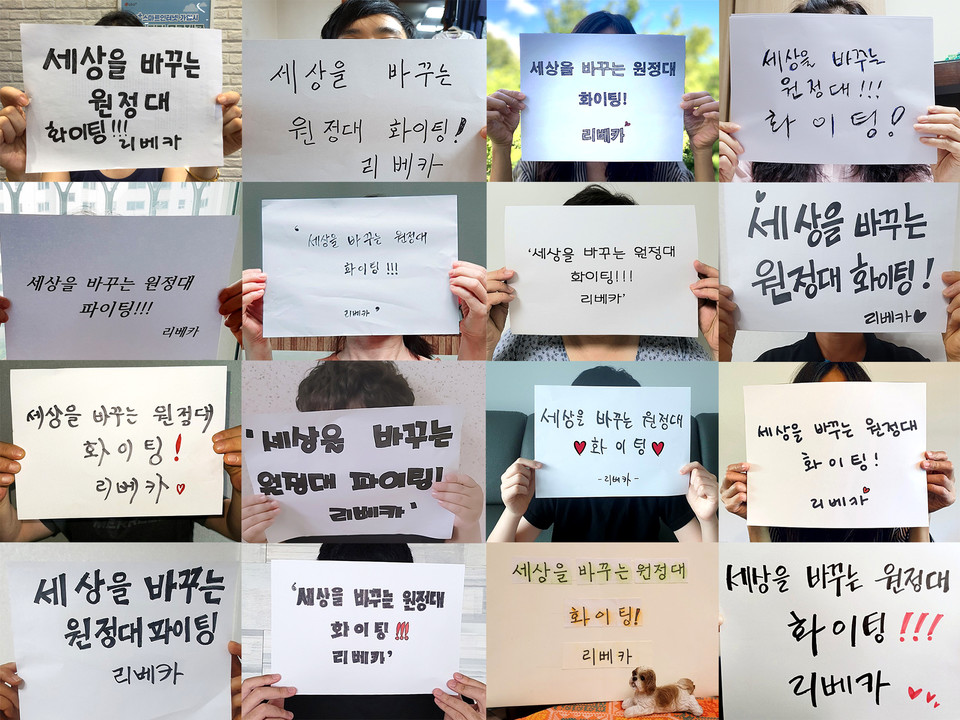 세상을 바꾸는
원정대
화이팅!!! 리베카
세상을 바꾸는
원정대 화이팅!
리베카
세상을 바꾸는 원정대
화이팅!
리베카
세상을 바꾸는
원정대!!!
화이팅!
세상을 바꾸는 원정대
파이팅!!!
리베카
‘세상을 바꾸는 원정대
화이팅!!!
리베카’
‘세상을 바꾸는 원정대
화이팅!!!
리베카’
세상을 바꾸는
원정대 화이팅!
리베카♥
세상을 바꾸는 원정대
화이팅!
리베카♡
'세상을 바꾸는
원정대 파이팅!
리베카'
세상을 바꾸는 원정대
♥화이팅♥
-리베카-
세상을 바꾸는 원정대
화이팅!
리베카♥
세상을 바꾸는
원정대 파이팅
리베카
‘세상을 바꾸는 원정대
화이팅!!!
리베카’
세상을 바꾸는 원정대
화이팅!
리베카
세상을 바꾸는 원정대
화이팅!!!
리베카♥♥♥